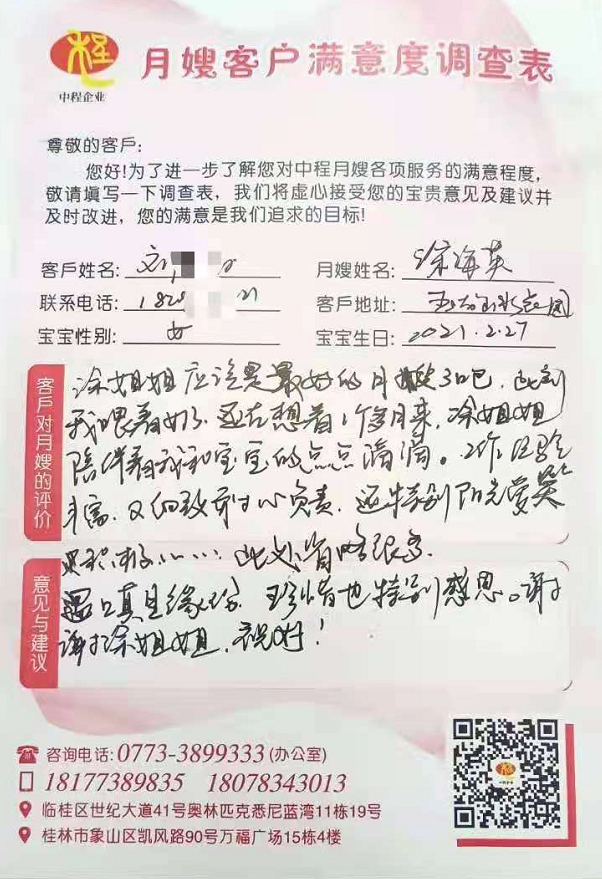 程
中程企业
月嫂客户满意度调查表
尊敬的客户:
您好!为了进一步了解您对中程月嫂各项服务的满意程度,
敬请填写一下调查表，我们将虚心接受您的宝贵意见及建议并
及时改进，您的满意是我们追求的目标!
客户姓名: 刘
月嫂姓名: 涂海英
联系电话: 182 21
客户地址: 园
宝宝性别: 女
宝宝生日: 2021.2.27
客户对月嫂的评价
涂姐姐应该是最好的月嫂了吧，此刻
我喂着奶，还在想着1个多月来，涂姐姐
陪伴着我和宝宝的点点滴滴。工作经验
丰富，又细致耐心负责，还特别阳光爱笑
更积极…… 此处省略很多
意见与建议
遇上真是缘份，珍惜也特别感恩。谢
谢涂姐姐，祝好！
咨询电话: 0773-3899333 (办公室)
18177389835 18078343013
临桂区世纪大道41号奥林匹克悉尼蓝湾11栋19号
桂林市象山区凯风路90号万福广场15栋4楼